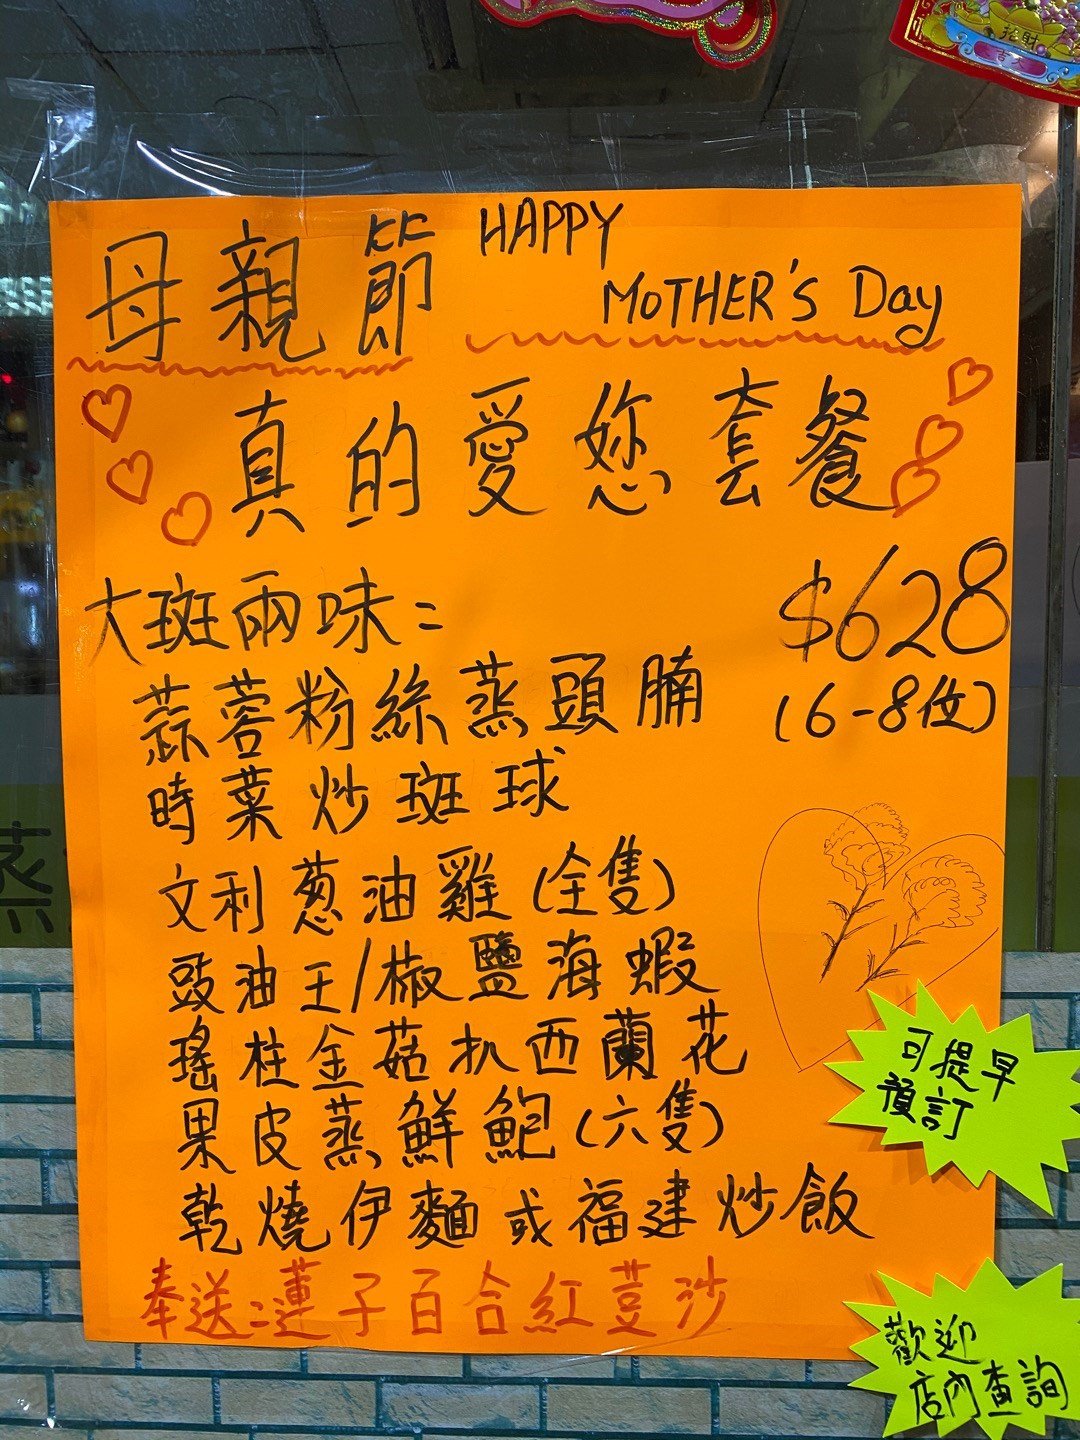 招財
母親節 HAPPY
MOTHER'S Day
真的愛您套餐
大斑兩味:
$628
(6-8位)
蒜蓉粉絲蒸頭腩
時菜炒斑球
文利葱油雞(全隻)
豉油王/椒鹽海蝦
瑤柱金菇扒西蘭花
果皮蒸鮮鮑(六隻)
乾燒伊麵或福建炒飯
奉送:蓮子百合紅荳沙
可提早
預訂
歡迎
店內查詢
蒸